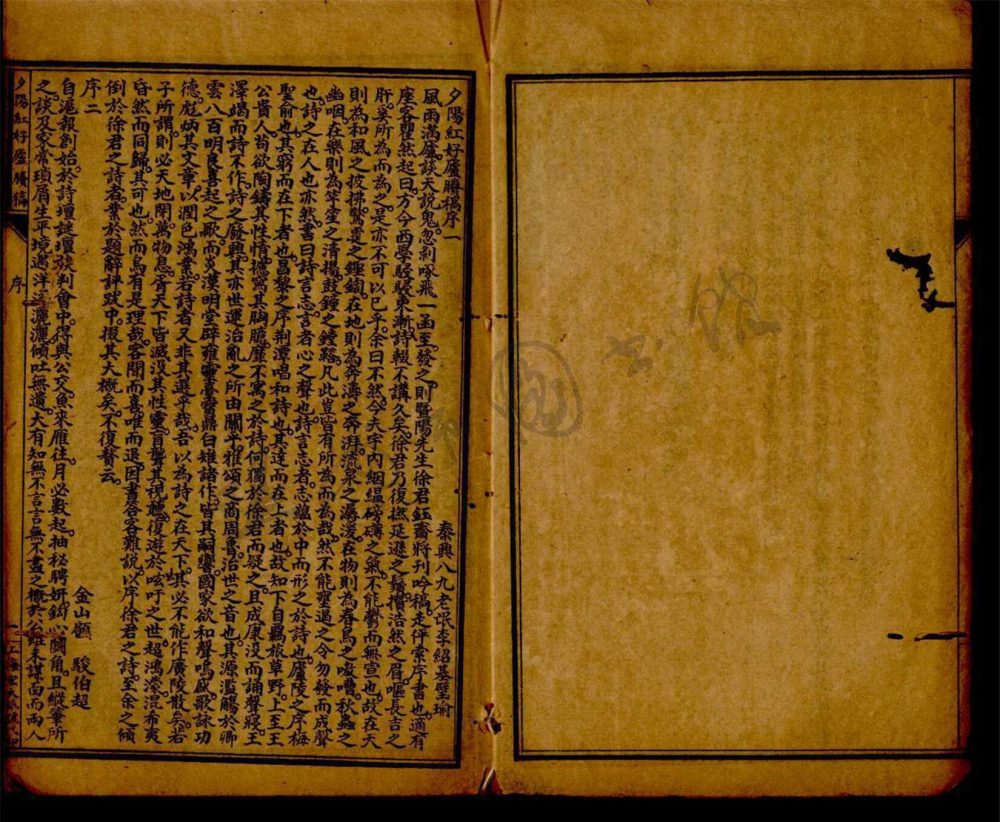 夕陽紅好廬賸稿序一
泰興八九老氓李紹基璧瑜
風雨滿廬談天說鬼忽剝啄飛一函至發之則暨陽先生徐君鈺齋將刊吟稿走伻索序書也適有
座客瞿然起曰方今西學駸駸東漸詩輟不講久矣徐君乃復撚延遜之鬚攢浩然之眉嘔長吉之
肝奚所為而為之是亦不可以已乎余曰不然今夫宇內絪縕磅礴之氣不能鬱而無宣也故在天
則為和風之披拂驚霆之鏗鍧在地則為奔濤之奔湃流泉之潺湲在物則為春鳥之嚶嚌秋蟲之
幽咽在樂則為笙堂之清揚鼓鐘之鏜鞳凡此豈有所為而為哉然不能壅遏之令勿發而成聲
也詩之在人也亦然書曰詩言志言者心之聲也詩言志者志蘊於中而形之於詩也廬陵之序梅
聖俞也其窮而在下者也昌黎之序荆潭唱和詩也其達而在上者也故知下自羈旅草野上至王
公貴人苟欲陶鑄其性情攄寫其胸臆靡不寓之於詩何獨於徐君而疑之且成康沒而誦聲寢王
澤竭而詩不作詩之廢興其亦世運治亂之所由關乎雅頌之商周魯治世之音也其源濫觴於卿
雲八百明良喜起之歌而炎漢明堂辟雍靈臺寶鼎白雉諸作皆其嗣響國家欲和聲鳴盛歌詠功
德彪炳其文章以潤色鴻業若詩者又非其選乎哉吾以為詩之在天下其必不能作廣陵散矣若
子所謂則必天地閉萬物息普天下皆滅沒其性靈盲聾其視聽復遊於呿吁之世超鴻濛混希夷
昏然而同歸其可也然而烏有是理哉客聞而喜唯而退因書答客難說以序徐君之詩至余之傾
倒於徐君之詩者業於題辭評跋中掇其大概矣不復贅云
序二
金山顧　駿伯超
自滬報創始於詩壇謎壇談判會中得與公交魚來雁往月必數起抽秘騁妍鉤心鬬角且縱筆所
之談及家常瑣屑生平境遇洋洋灑灑傾吐無遺大有知無不言言無不盡之概於公雖未謀面而兩人
夕陽紅好廬賸稿
序
一